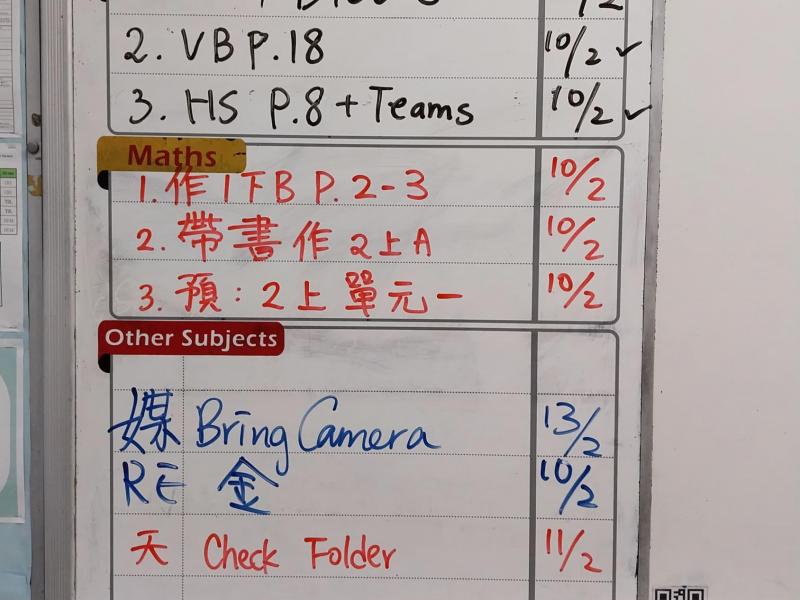 2. VB P.18 10/2 ✓
3. HS P.8 + Teams 10/2 ✓
Maths
1. 作1下B P.2-3 10/2
2. 帶書作2上A 10/2
3. 預:2上單元一 10/2
Other Subjects
媒 Bring Camera 13/2
RE 金 10/2
天 Check Folder 11/2